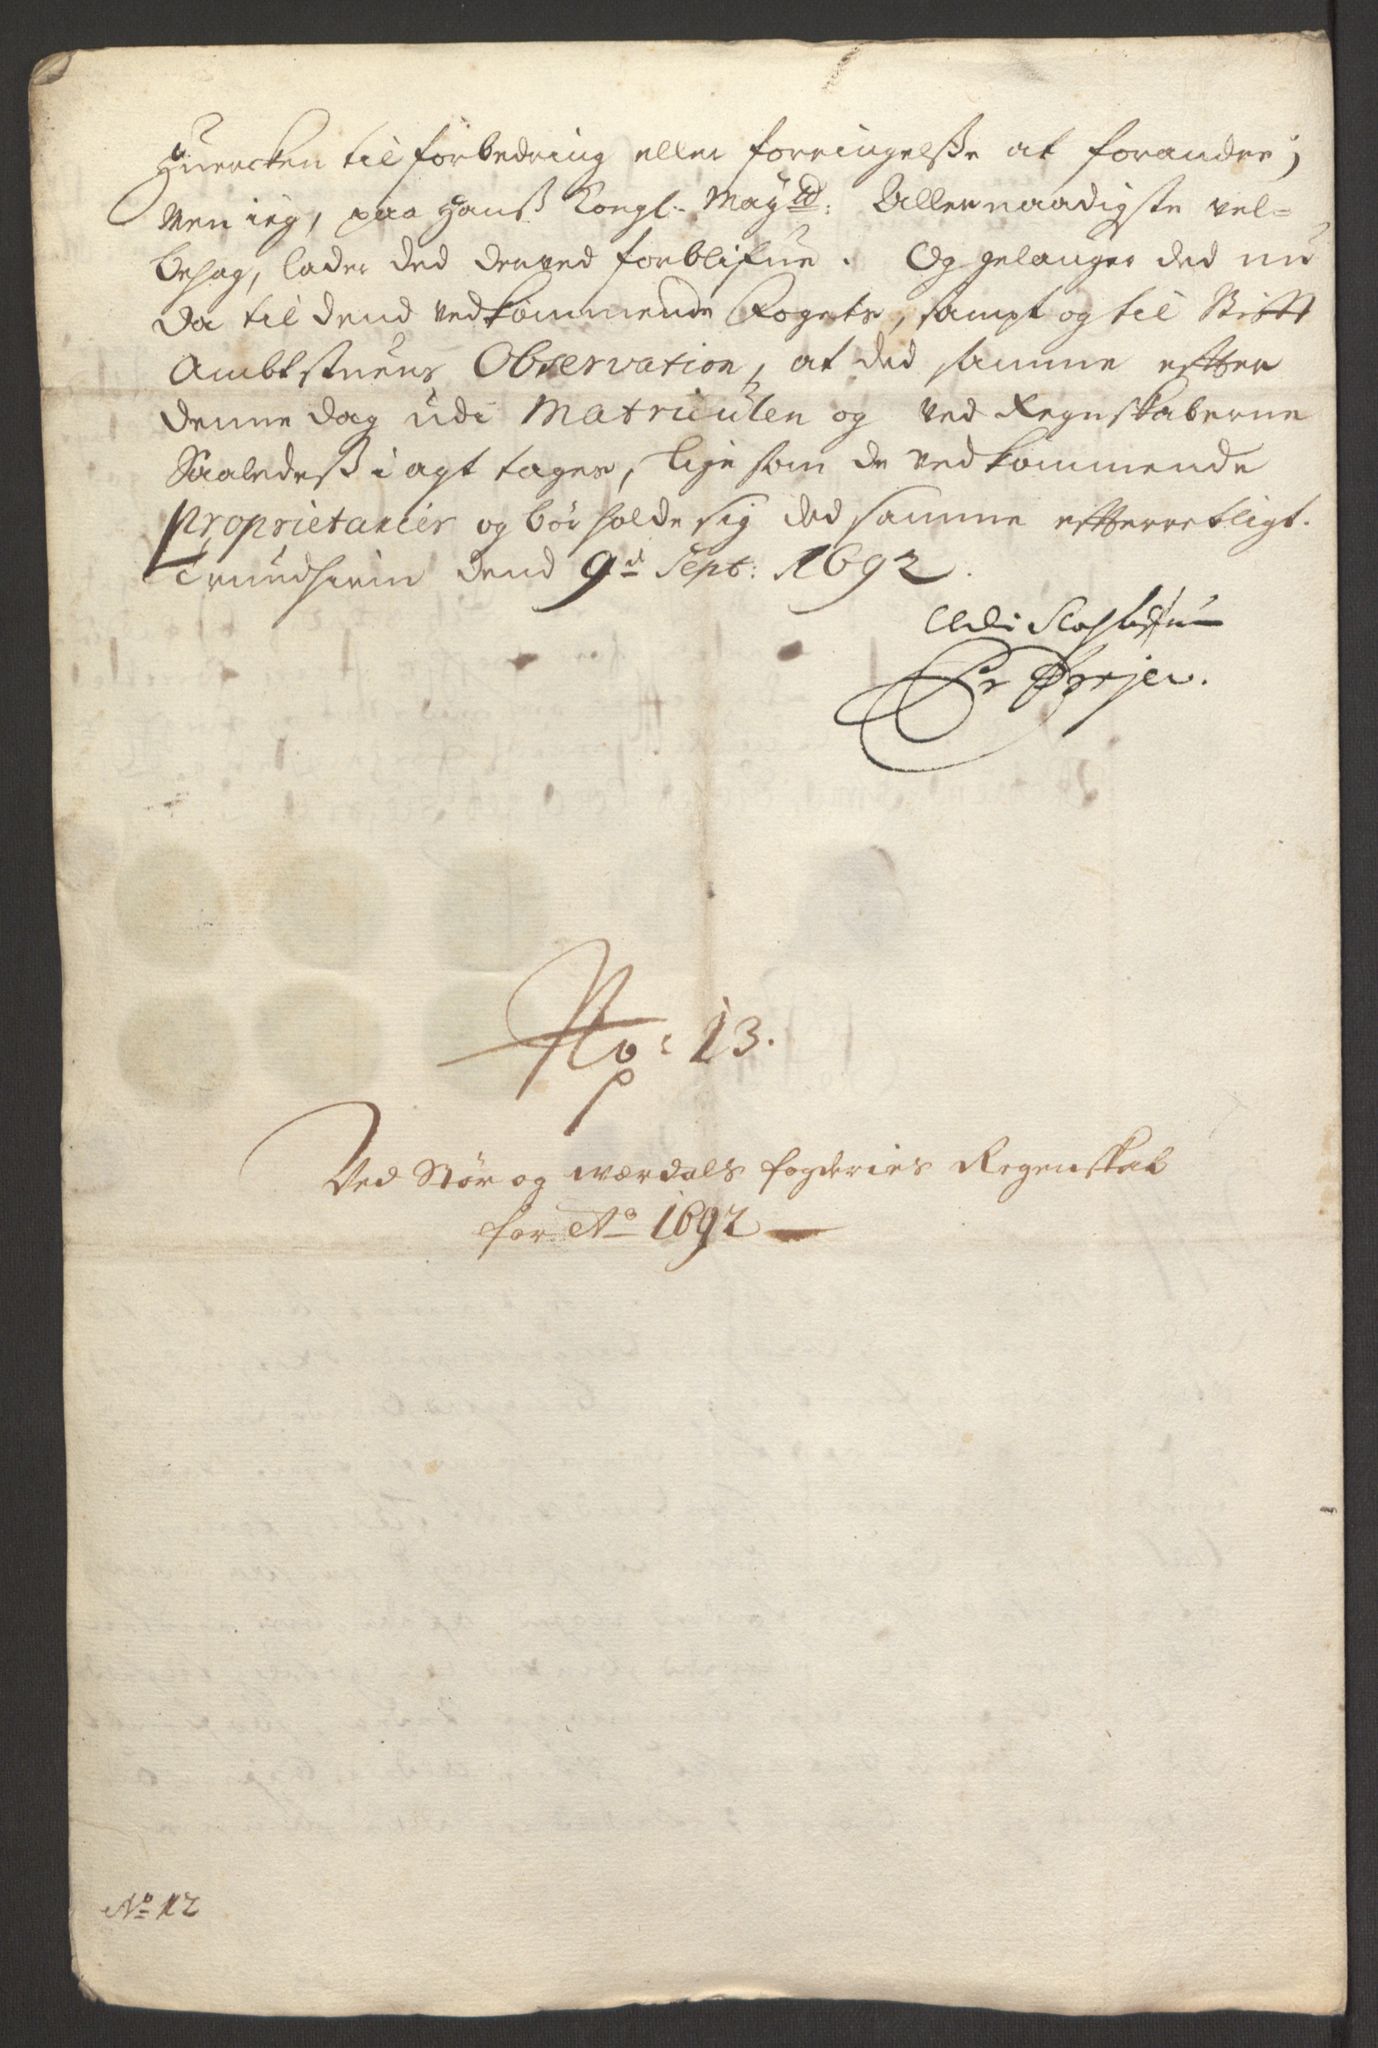 Huercken til forbedring eller forringelsse at forandre;
Men ieg, paa Hanß Kongl: May.td: Allernaadigste vel=
behag, lader ded derved forblifue. Og gelanger ded nu
da til dend vedkommende Fogets, sampt og til Stifft
Ambtstuens Observation, at ded samme effter
denne dag udi Matriculen og ved Regnskaberne
Saaledeß i agt tages, lige som de vedkommende
Proprietarier og bør holde sig ded samme effterretligt.
Trundhiem dend 9d Sept: 1692.
No: 13.
Ved Stør og Værdals fogderies Regenskab
for Ao 1692
No 12